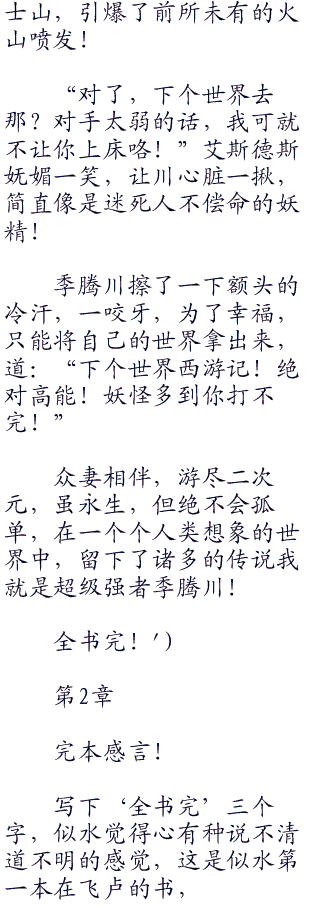 士山，引爆了前所未有的火
山喷发！
“对了，下个世界去
那？对手太弱的话，我可就
不让你上床咯！”艾斯德斯
妩媚一笑，让川心脏一揪，
简直像是迷死人不偿命的妖
精！
季腾川擦了一下额头的
冷汗，一咬牙，为了幸福，
只能将自己的世界拿出来，
道：“下个世界西游记！绝
对高能！妖怪多到你打不
完！”
众妻相伴，游尽二次
元，虽永生，但绝不会孤
单，在一个个人类想象的世
界中，留下了诸多的传说我
就是超级强者季腾川！
全书完！')
第2章
完本感言！
写下‘全书完’三个
字，似水觉得心有种说不清
道不明的感觉，这是似水第
一本在飞卢的书，